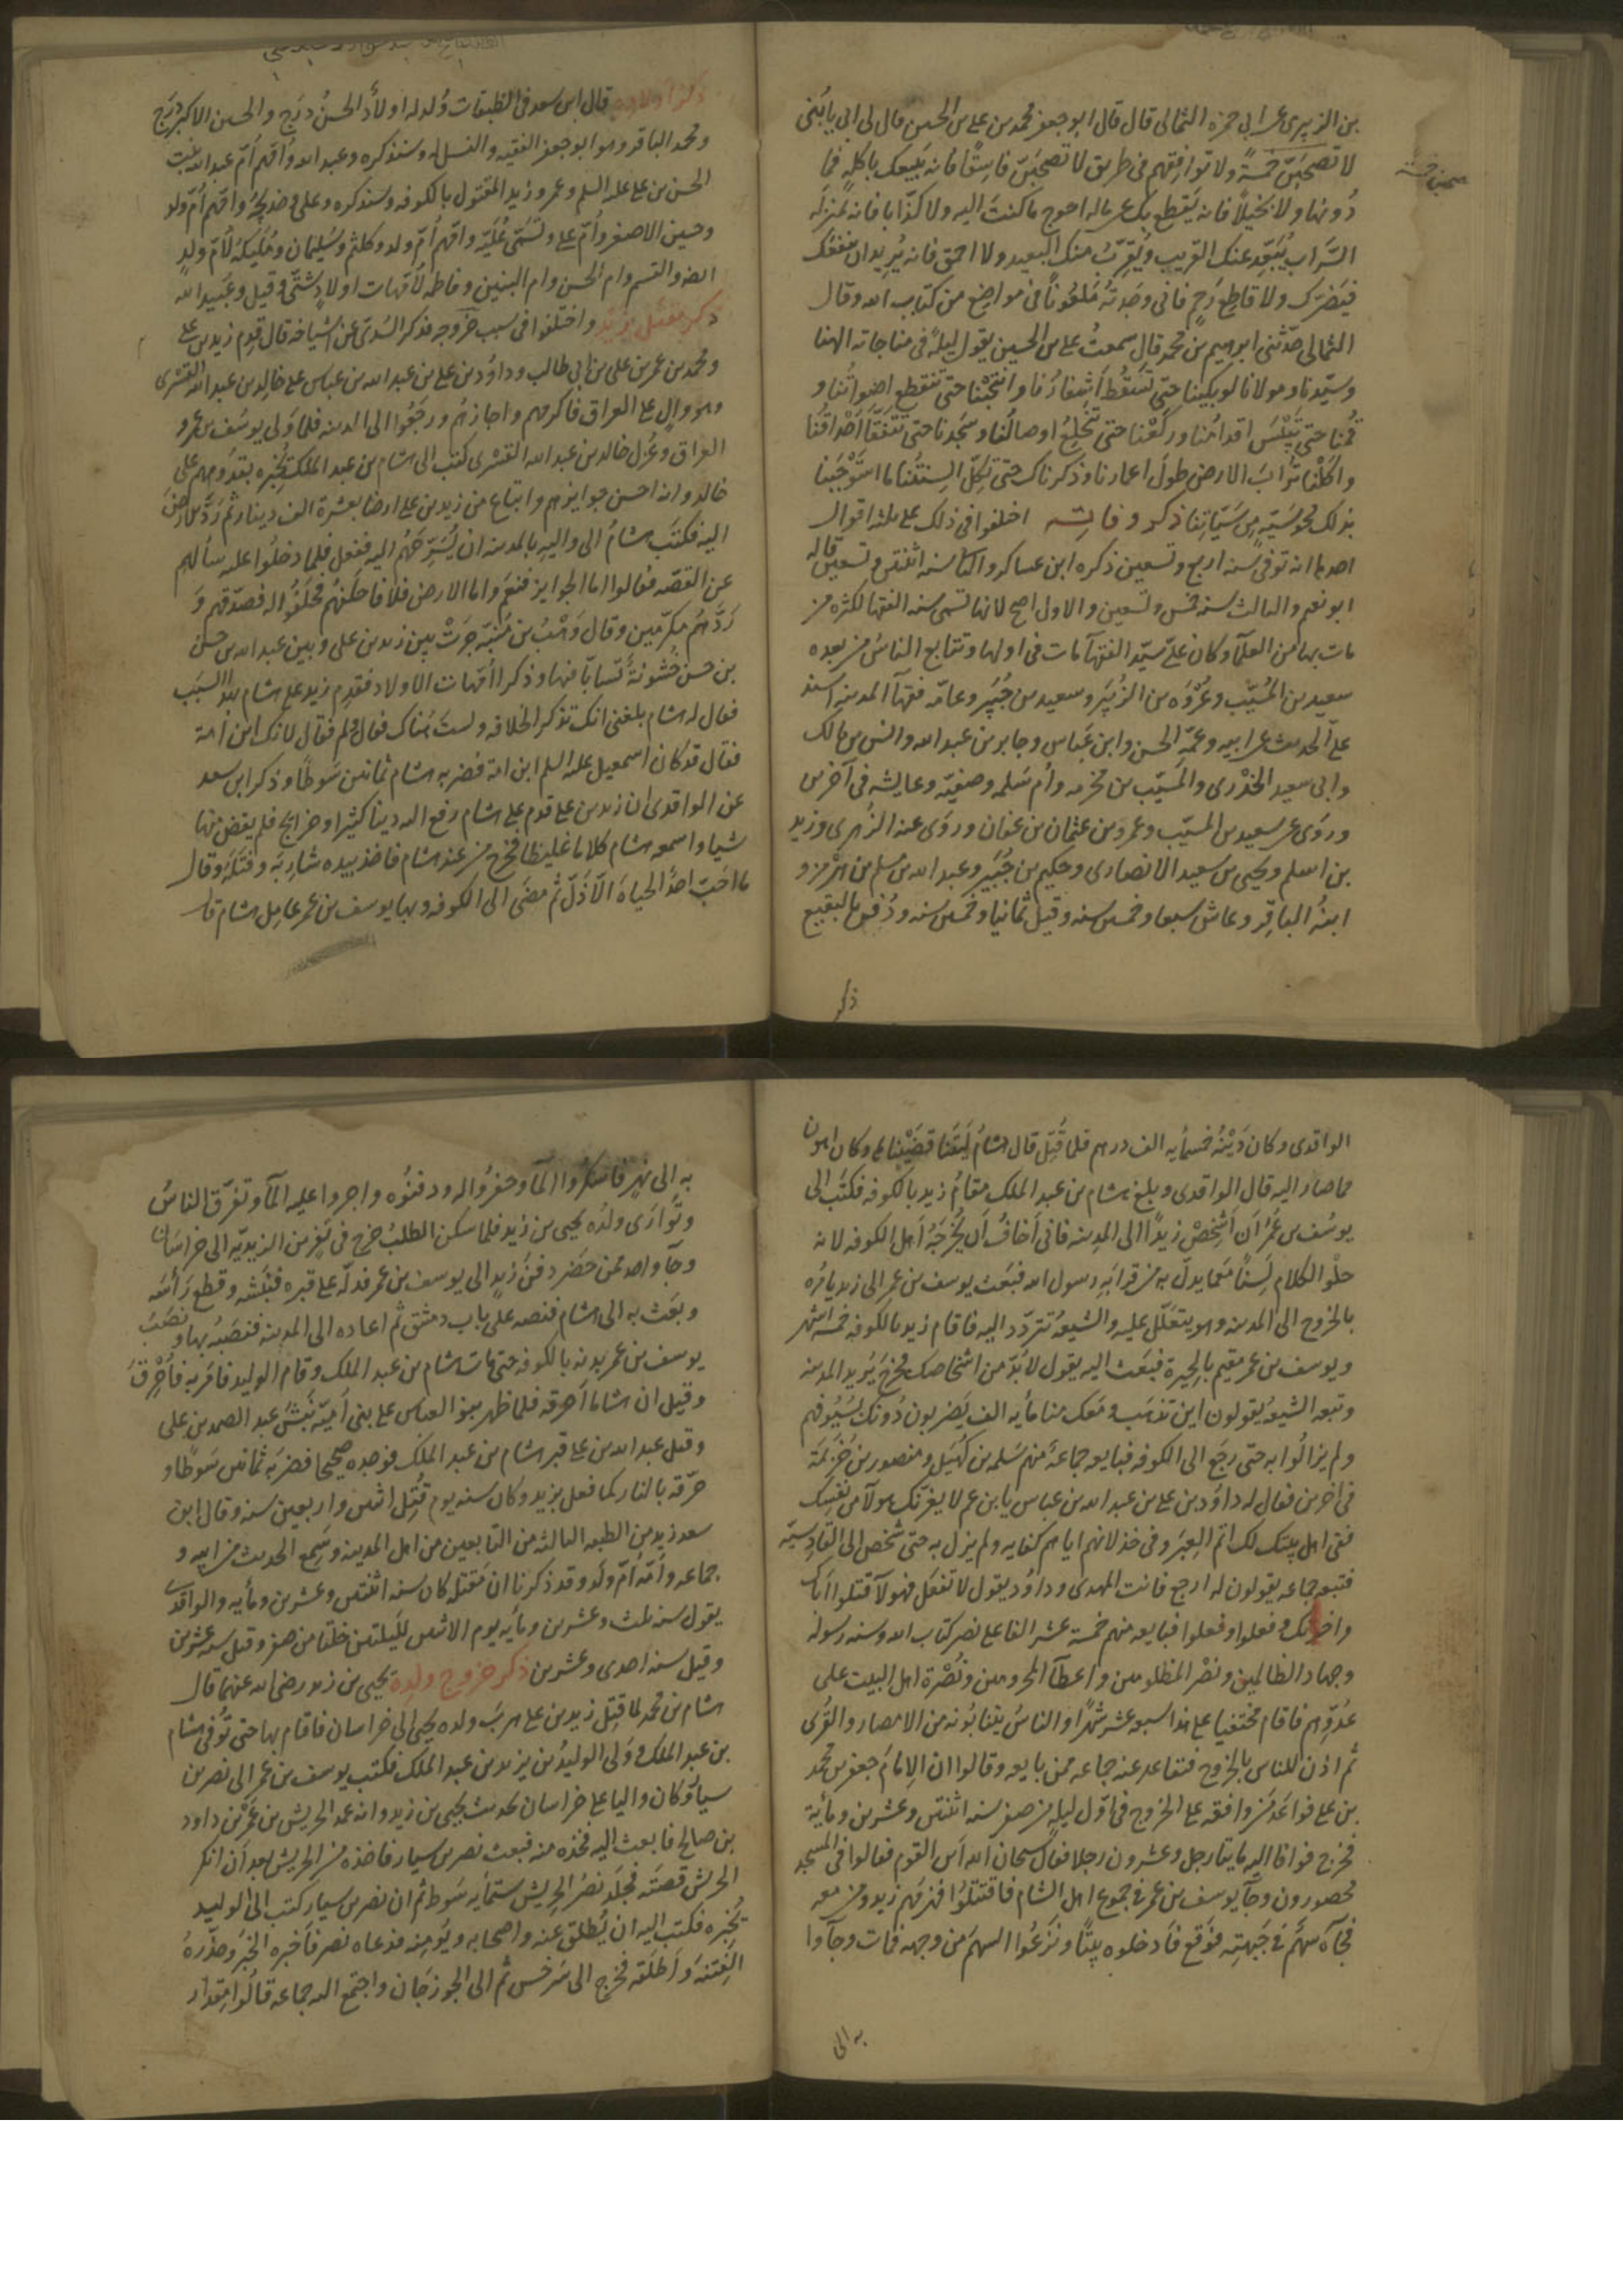 بن الزبيرى عن ابى حمزه الثمالى قال قال ابو جعفر محمد بن على بن الحسين قال لى ابى يا بُنى
لا تصحبَنّ خمسةً ولا توافقهم فى طريق لا تصحبَنّ فاسِقًا فانه يَبيعك باكلهٍ فما
دُونها ولا بخيلاً فانه يَقطع بك عن ماله احوج ما كنتَ اليه ولا كذّابا فانه بمنزلة
السَّراب يُبَعِّد عنك القريب ويُقرّبُ منك البعيد ولا احمق فانه يُريد ان ينفعَك
فيَضرّك ولا قاطع رَحِم فانى وجَدتُه مَلعُونًا فى مواضع من كتاب الله وقال
الثمالى حَدّثنى ابرهيم بن محمد قال سمعتُ على بن الحسين يقول ليلةً فى مناجاته الهنا
وسيّدنا ومولانا لو بكينا حتى تَسقُط اَشفارُنا وانتحَبْنا حتى تنقطع اصواتُنا و
قُمنا حتى تَيْبَس اقدامُنا وركَعْنا حتى تنخلعُ اوصالُنا وسَجَدنا حتى تتَفَقّأ اَحْداقُنا
واكَلْنا ترابَ الارض طولَ اعمارنا وذكرناك حتى تكِلّ السِنتُنا ما استَوْجَبنا
بذلك محو سَيّئهٍ من سَيّئاتِنا ذكر وفاته اختلفوا فى ذلك على ثلثه اقوال
احدها انه توفى سنه اربع وتسعين ذكره ابن عساكر والثانى سنه اثنتين وتسعين قاله
ابو نعيم والثالث سنه خمس وتسعين والاول اصح لانها تسمى سنه الفقهآ لكثره من
مات بها من العلمآ وكان علىّ سيّد الفقهآ مات فى اولها وتتابع الناسُ من بعده
سعيد بن المُسيّب وعُرْوَه بن الزُبَير وسعيد بن جُبَير وعامّه فقهآ المدينه اسند
علىّ الحديث عن ابيه وعمّه الحسن وابن عباس وجابر بن عبد الله وانس بن مالك
وابى سعيد الخدْرى والمسيّب بن مخرمه وأم سَلمه وصفيّه وعايشه فى آخرين
وروَى عن سعيد بن المسيّب وعمرو بن عثمان بن عفان وروَى عنه الزُهرى وزيد
بن اسلم ويحيى بن سعيد الانصارى وحكيم بن جُبَير وعبد الله بن مسلم بن هُرْمز و
ابنهُ الباقِر وعاش سبعا وخمسين سنه وقيل ثمانيا وخمسين سنه ودُفن بالبقيع
ذكر
ذكر اولاده قال ابن سعد فى الطبقات وُلد له اولادٌ الحسنُ درَج والحسين الاكبر درَج
ومحمد الباقر وهو ابو جعفر الفقيه والنسل له وسنذكره وعبد الله وأمّهم اُمّ عبد الله بنت
الحسن بن على عليه السلم وعمرو وزيد المقتول بالكوفه وسنذكره وعلى وخديجةُ وامّهم أمّ ولد
وحسين الاصغر وأمّ على وتُسَمّى عُلَيّه وامّهم اُمّ ولد وكلثم وسُليمان ومُلَيكَهُ لاُمّ ولدٍ
ايضا والقسم وام الحسن وام البنين وفاطمه لاُمّهات اولادٍ شتّى وقيل وعُبيد الله
ذكر مَقتل زيد واختلفوا فى سبب خروجه فذكر السُدىّ عن اشياخه قال قدِم زيد بن على
ومحمد بن عمر بن على بن ابى طالب وداوُد بن على بن عبد الله بن عباس على خالد بن عبد الله القسْرى
وهو والٍ على العراق فاكرمهم واجازهُم ورجَعُوا الى المدينه فلما وَلى يوسُف بن عمرو
العراق وعُزل خالد بن عبد الله القسْرى كتبَ الى هشام بن عبد الملك يُخبره بقدُومهم على
خالد وانه احسن جوايزهم وابتاع من زيد بن على ارضا بعشرة الف دينار ثم رَدّ الارضَ
اليه فكتبَ هشامٌ الى واليهِ بالمدينه ان يُسَرّحَهُم اليه ففعل فلما دخلُوا عليه سالهم
عن القصّه فقالوا اما الجوايز فنعَم واما الارضُ فلا فاحلَفهُم فحلَفُوا له فصدّقهم وَ
رَدّهُم مكرّمين وقال وَهْبُ بن مُنبّه جرَتْ بين زيد بن على وبين عبد الله بن حسن
بن حسن خشُونةٌ تَسابّا فيها وذكرا اُمّهات الاولاد فقدِم زيد على هشام بهذا السبَب
فقال له هشام بلغنى انك تذكر الخلافه ولستَ هُناك فقال ولِم فقال لانك ابن اَمة
فقال قد كان اسمعيل عليه السلم ابن امة فضربه هشام ثمانين سَوطًا وذكر ابن سعد
عن الواقدى ان زيد بن على قدم على هشام رفع اليه دينا كثيرا وحوايج فلم يقض منها
شيا واسمعه هشام كلاما غليظا فخرج من عند هشام فاخذ بيده شارِبَه وفتَلَه وقال
ما احَبّ احدٌ الحياةَ الّا ذَلّ ثم مضَى الى الكوفه وبها يوسف بن عمر عامِل هشام قال
الواقدى وكان دَيْنُه خمسمأيه الف درهم فلما قُتِل قال هشامُ لَيتَنا قضَيْناها وكان اهون
مما صار اليه قال الواقدى وبلغ هشام بن عبد الملك مقامُ زيد بالكوفه فكتَبَ الى
يوسُف بن عُمَر اَن اَشخِصْ زيدًا الى المدينه فانى اخافُ اَن يُخرجَهُ اَهل الكوفه لانه
حلْوُ الكلام لَسِنًا مَع ما يدلّ به من قرابَهِ رسول الله فبَعَث يوسف بن عمر الى زيد يامُره
بالخروج الى المدينه وهو يتعَلّل عليه والشيعهُ تتردّد اليه فاقام زيد بالكوفه خمسه اشهر
ويوسف بن عمر مقيم بالحِيرة فبَعَث اليه يقول لا بُدّ من اشخاصك فخرج يُريد المدينه
وتبعه الشيعهُ يقولون اين تذهب ومَعَك منا مأيه الف يَضربون دُونك بسُيُوفهم
ولم يزالوا به حتى رجَع الى الكوفه فبايعه جماعةٌ منهم سَلمه بن كُهَيل ومنصور بن خُزَيمَة
فى آخرين فقال له داوُد بن على بن عبد الله بن عباس يا بن عم لا يغرّنك هولآ من نفسك
ففى اهل بيتك لك اتمّ العِبَر وفى خذلانهم اياهم كفايه ولم يزل به حتى شَخصَ الى القادِسيّه
فتبعه جماعه يقولون له ارجع فانت المهدى وداوُد يقول لا تفعَل فهولآ قتلوا اباك
واخوتك وفعلوا وفعلوا فبايعه منهم خمسة عشر الفا على نصر كتاب الله وسنه رسوله
وجهاد الظالمين ونصْر المظلومين واعطآ المحرومين ونُصْرة اهل البيت على
عدُوّهم فاقام مختفيا على هذا سبعه عشر شهرًا والناسُ ينتابُونه من الامصار والقُرى
ثم اذن للناس بالخروج فتقاعد عنه جماعه ممن بايعه وقالوا ان الامامَ جعفر بن محمد
بن على فواعَدَ من وافقه على الخروج فى اوّل ليلهٍ من صفر سنه اثنتين وعشرين ومأية
فخرج فوافا اليه مايتا رجل وعشرون رجلا فقال سبحان الله اَين القوم فقالوا فى المسجد
محصورون وجآ يوسف بن عمر فى جموع اهل الشام فاقتتلُوا فهزمهم زيد ومن معه
فجآه سهمٌ فى جَبهتِه فوَقع فاَدخلوه بيتًا ونزعُوا السهمَ من وجهه فمات وجآوا
به الى
به الى نهرٍ فاسكرُوا المآ وحفرُوا له ودفنُوه واجروا عليه المآ وتفرّق الناسُ
وتوارَى ولدُه يحيى بن زيد فلما سكن الطلبُ خرج فى نَفَرٍ من الزيديّه الى خراسَان
وجآ واحد ممن حَضر دفنَ زيدٍ الى يوسف بن عمر فدلّه على قبره فنبَشه وقطع رَأسَه
وبعَث به الى هشام فنصبه على باب دمشق ثم اعاده الى المدينه فنصَبهُ بها ونصَبَ
يوسف بن عمر بدنه بالكوفه حتى مات هشام بن عبد الملك وقام الوليد فامَر به فاُحْرِقَ
وقيل ان هشاما اَحرقه فلما ظهر بنو العباس على بنى اَميّه نَبَش عبد الصمد بن على
وقيل عبد الله بن على قبر هشام بن عبد الملك فوجده صحيحا فضربَه ثمانين سَوطًا و
حرّقه بالنار كما فعل بزيد وكان سنه يوم قُتِل اثنين واربعين سنه وقال ابن
سعد زيد من الطبقه الثالثه من التابعين من اهل المدينه وسَمِع الحديث من ابيه و
جماعه واُمّه اُمّ ولَد وقد ذكرنا ان مَقتله كان سنه اثنتين وعشرين ومأيه والواقدى
يقول سنه ثلث وعشرين ومأيه يوم الاثنين لليلتين خلتا من صفر وقيل سنه عشرين
وقيل سنه احدى وعشرين ذكر خروج ولده يحيى بن زيد رضى الله عنهما قال
هشام بن محمد لما قُتِل زيد بن على هرَبَ ولده يحيى الى خراسان فاقام بها حتى تُوفى هشام
بن عبد الملك ووَلى الوليدُ بن يزيد بن عبد الملك فكتب يوسف بن عمر الى نصر بن
سيّار وكان واليا على خراسان بحديث يحيى بن زيد وانه عند الحريش بن عَمْرو بن داود
بن صالح فابعث اليه فخذه منه فبعث نصر بن سيار فاخذه من الحريش بعد اَن انكر
الحريش قصتَه فجلَد نصرُ الحريش ستمأيه سَوط ثم ان نصر بن سيار كتب الى الوليد
يُخبره فكتب اليه ان يُطلق عنه واصحابه ويَومِنه فدعاه نصر فاَخبره الخبر وحذّرهُ
الفِتنه وَاَطلَقه فخرج الى سَرخس ثم الى الجوزجَان واجتمع اليه جماعه قالُوا مِقدار